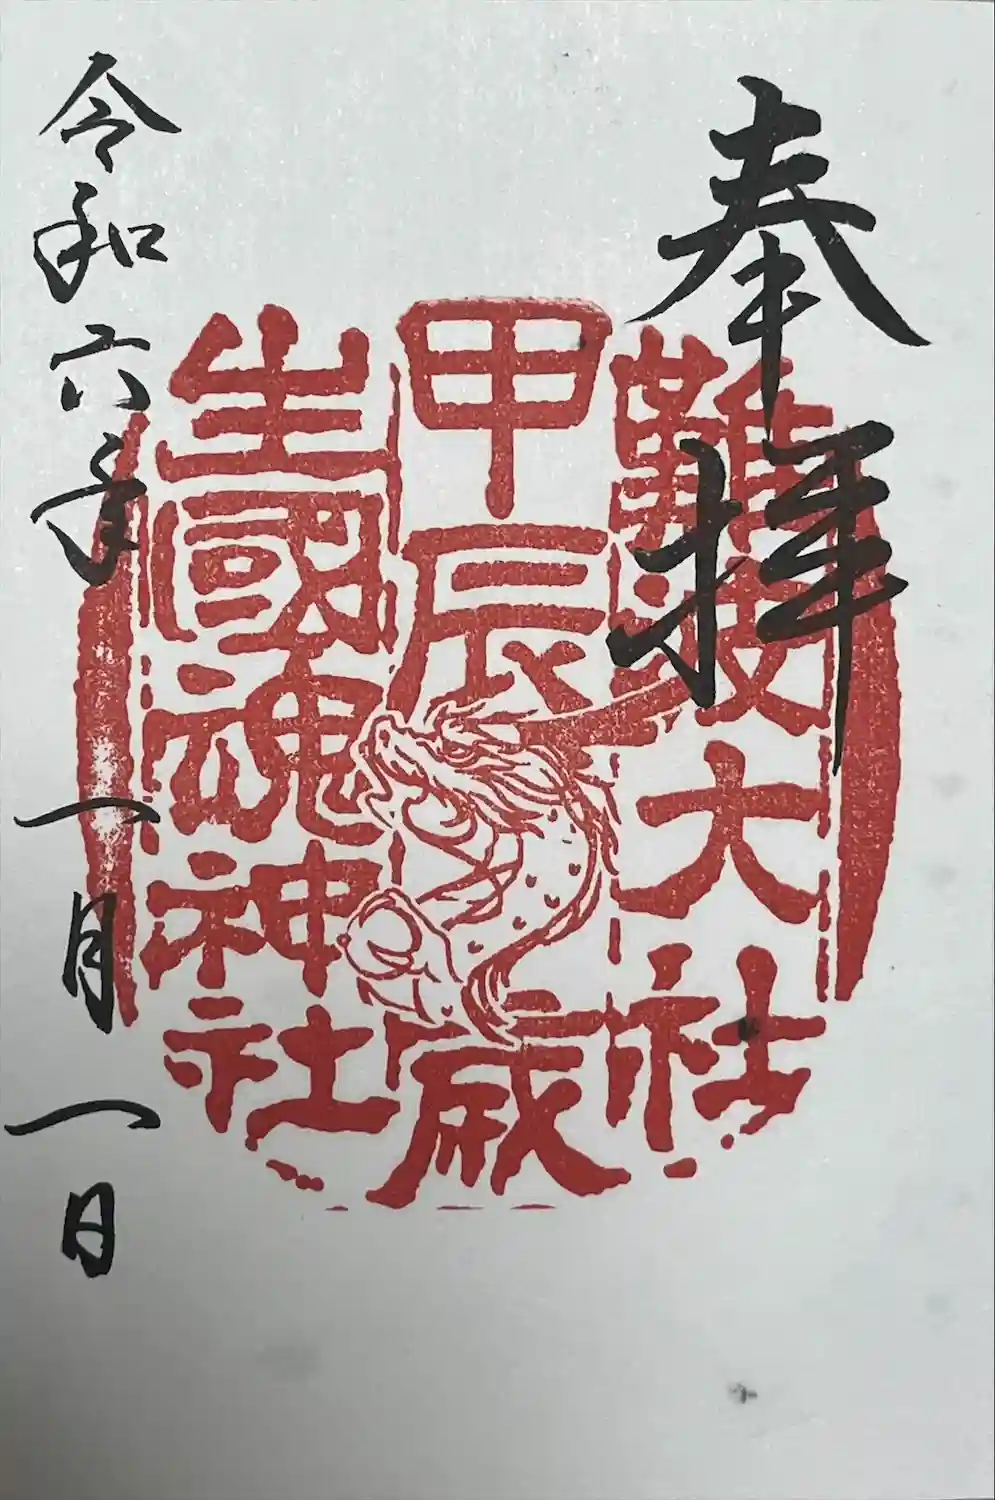 奉拝
難波大社
甲辰歳
生國魂神社
令和六年
一月一日